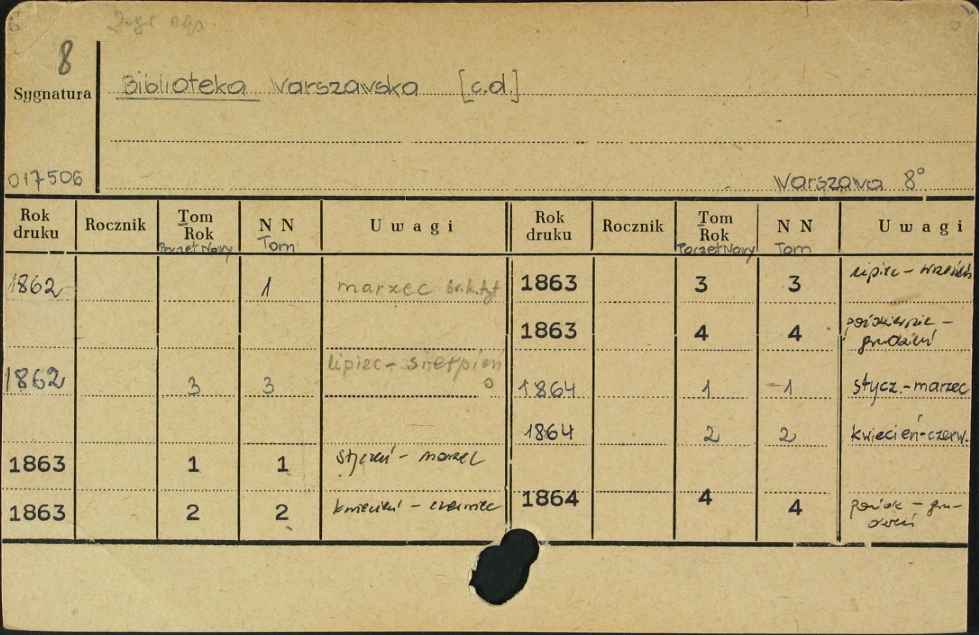 8
Sygnatura
Biblioteka Warszawska [c.d.]
017506
Warszawa 8°
Rok druku Rocznik Tom Rok Poczet Nowy N N Tom Uwagi Rok druku Rocznik Tom Rok Poczet Nowy N N Tom Uwagi
1862 1 marzec br. k. tyt
1862 3 3 lipiec - sierpień
1863 1 1 styczeń - marzec
1863 2 2 kwiecień - czerwiec
1863 3 3 lipiec - wrzesień
1863 4 4 październik - grudzień
1864 1 1 stycz. - marzec
1864 2 2 kwiecień - czerw.
1864 4 4 paźdz - gru-
dzień